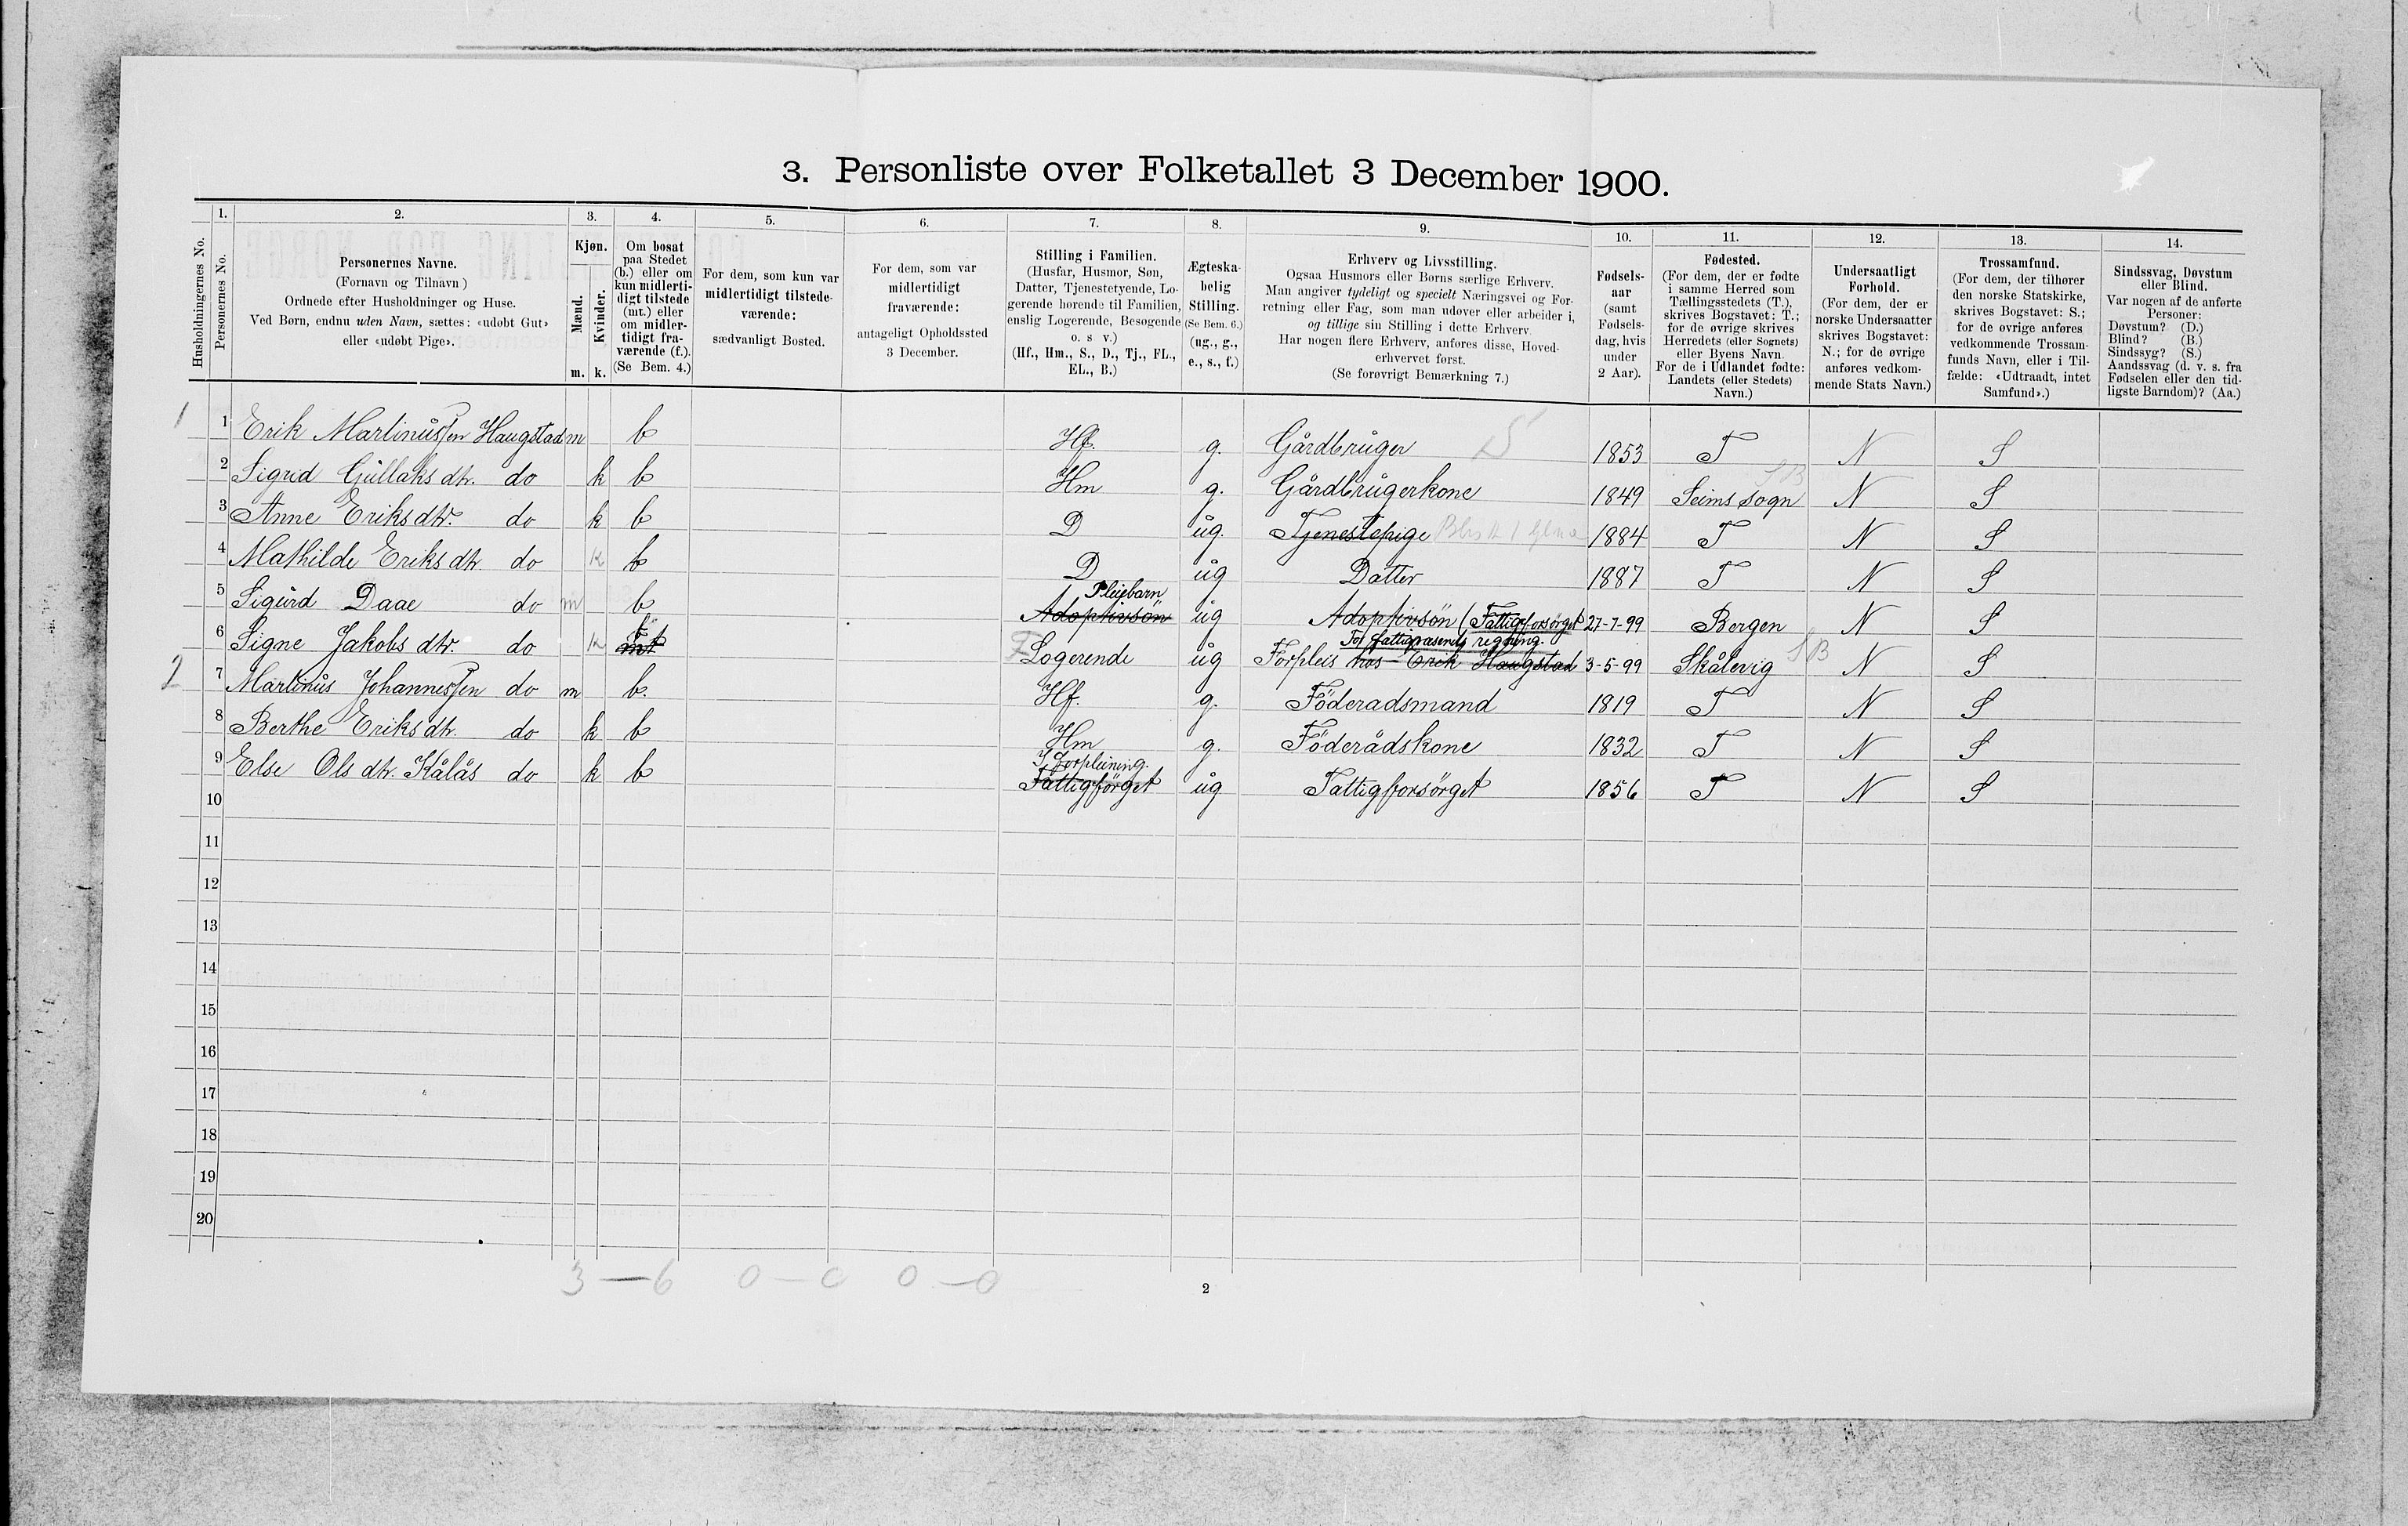 3. Personliste over Folketallet 3 December 1900.
Husholdningernes No.
1. Personernes No.
2. Personernes Navne.
(Fornavn og Tilnavn)
Ordnede efter Husholdninger og Huse.
Ved Børn, endnu uden Navn, sættes: «udøbt Gut»
eller «udøbt Pige».
3. Kjøn.
Mænd. m.
Kvinder. k.
4. Om bosat
paa Stedet
(b.) eller om
kun midlerti-
digt tilstede
(mt.) eller
om midler-
tidigt fra-
værende (f.).
(Se Bem. 4.)
5. For dem, som kun var
midlertidigt tilstede-
værende:
sædvanligt Bosted.
6. For dem, som var
midlertidigt
fraværende:
antageligt Opholdssted
3 December.
7. Stilling i Familien.
(Husfar, Husmor, Søn,
Datter, Tjenestetyende, Lo-
gerende hørende til Familien,
enslig Logerende, Besøgende
o. s v.)
(Hf., Hm., S., D., Tj., FL.,
EL., B.)
8. Ægteska-
belig
Stilling.
(Se Bem. 6.)
(ug., g.,
e., s., f.)
9. Erhverv og Livsstilling.
Ogsaa Husmors eller Børns særlige Erhverv.
Man angiver tydeligt og specielt Næringsvei og For-
retning eller Fag, som man udøver eller arbeider i,
og tillige sin Stilling i dette Erhverv.
Har nogen flere Erhverv, anføres disse, Hoved-
erhvervet først.
(Se forøvrigt Bemærkning 7.)
10. Fødsels-
aar
(samt
Fødsels-
dag, hvis
under
2 Aar).
11. Fødested.
(For dem, der er fødte
i samme Herred som
Tællingsstedets (T.),
skrives Bogstavet: T.;
for de øvrige skrives
Herredets (eller Sognets)
eller Byens Navn.
For de i Udlandet fødte:
Landets (eller Stedets)
Navn.)
12. Undersaatligt
Forhold.
(For dem, der er
norske Undersaatter
skrives Bogstavet:
N.; for de øvrige
anføres vedkom-
mende Stats Navn.)
13. Trossamfund.
(For dem, der tilhører
den norske Statskirke,
skrives Bogstavet: S.;
for de øvrige anføres
vedkommende Trossam-
funds Navn, eller i Til-
fælde: «Udtraadt, intet
Samfund».)
14. Sindssvag, Døvstum
eller Blind.
Var nogen af de anførte
Personer:
Døvstum? (D.)
Blind? (B.)
Sindssyg? (S.)
Aandssvag (d. v. s. fra
Fødselen eller den tid-
ligste Barndom)? (Aa.)
1 1 Erik Martinussen Haugstad m b Hf. g. Gårdbruger 1853 T N S
2 Sigrid Gullaks dtr. do k b Hm g. Gårdbrugerkone 1849 Seims sogn SB N S
3 Anne Eriks dtr. do k b D ug. Tjenestepige 1884 T N S
4 Mathilde Eriks dtr. do k b D ug Datter 1887 T N S
5 Sigurd Daae do m b Adoptivsön Pleiebarn ug Adoptivsön (Fattigforsörget 27-7-99 Bergen N S
6 Signe Jakobs dtr. do k mt b Logerende ug Forpleis hos Erik Haugstad For fattigvæsenets regning. 3-5-99 Skålevig SB N S
2 7 Martinus Johannessen do m b. Hf. g. Föderadsmand 1819 T N S
8 Berthe Eriks dtr. do k b Hm g. Föderådskone 1832 T N S
9 Else Ols dtr. Kålås do k b Fattigförget I forpleining. ug Fattigforsörget 1856 T N S
10
11
12
13
14
15
16
17
18
19
20
3 — 6 0 — 0 0 — 0
2